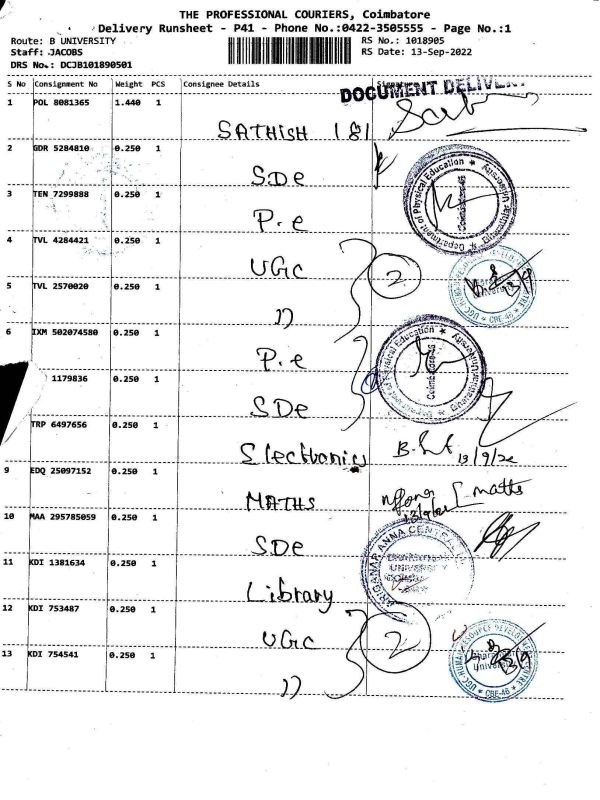 THE PROFESSIONAL COURIERS, Coimbatore
Delivery Runsheet - P41 - Phone No.:0422-3505555 - Page No.:1
Route: B UNIVERSITY RS No.: 1018905
Staff: JACOBS RS Date: 13-Sep-2022
DRS No.: DCJB101890501
S No Consignment No Weight PCS Consignee Details Signature
DOCUMENT DELIVE
1 POL 8081365 1.440 1
SATHISH 181
2 GDR 5284810 0.250 1
SDe
3 TEN 7299888 0.250 1
P.e
Department of Physical Education Bharathiar University Coimbatore-46
4 TVL 4284421 0.250 1
UGC 2
5 TVL 2570020 0.250 1
")
UGC-HUMAN RESOURCE DEVELOPMENT CENTRE Bharathiar University CBE-46
6 IXM 502074580 0.250 1
P.e
Department of Physical Education Bharathiar University Coimbatore-46
1179836 0.250 1
SDe
TRP 6497656 0.250 1
Electronics 13/9/22
9 EDQ 25097152 0.250 1
MATHS maths
10 MAA 295785059 0.250 1
SDe
11 KDI 1381634 0.250 1
Library
ARIGNAR ANNA CENTRAL
UNIVERSITY
12 KDI 753487 0.250 1
UGC 2
13 KDI 754541 0.250 1
")
UGC-HUMAN RESOURCE DEVELOPMENT CENTRE Bharathiar University CBE-46